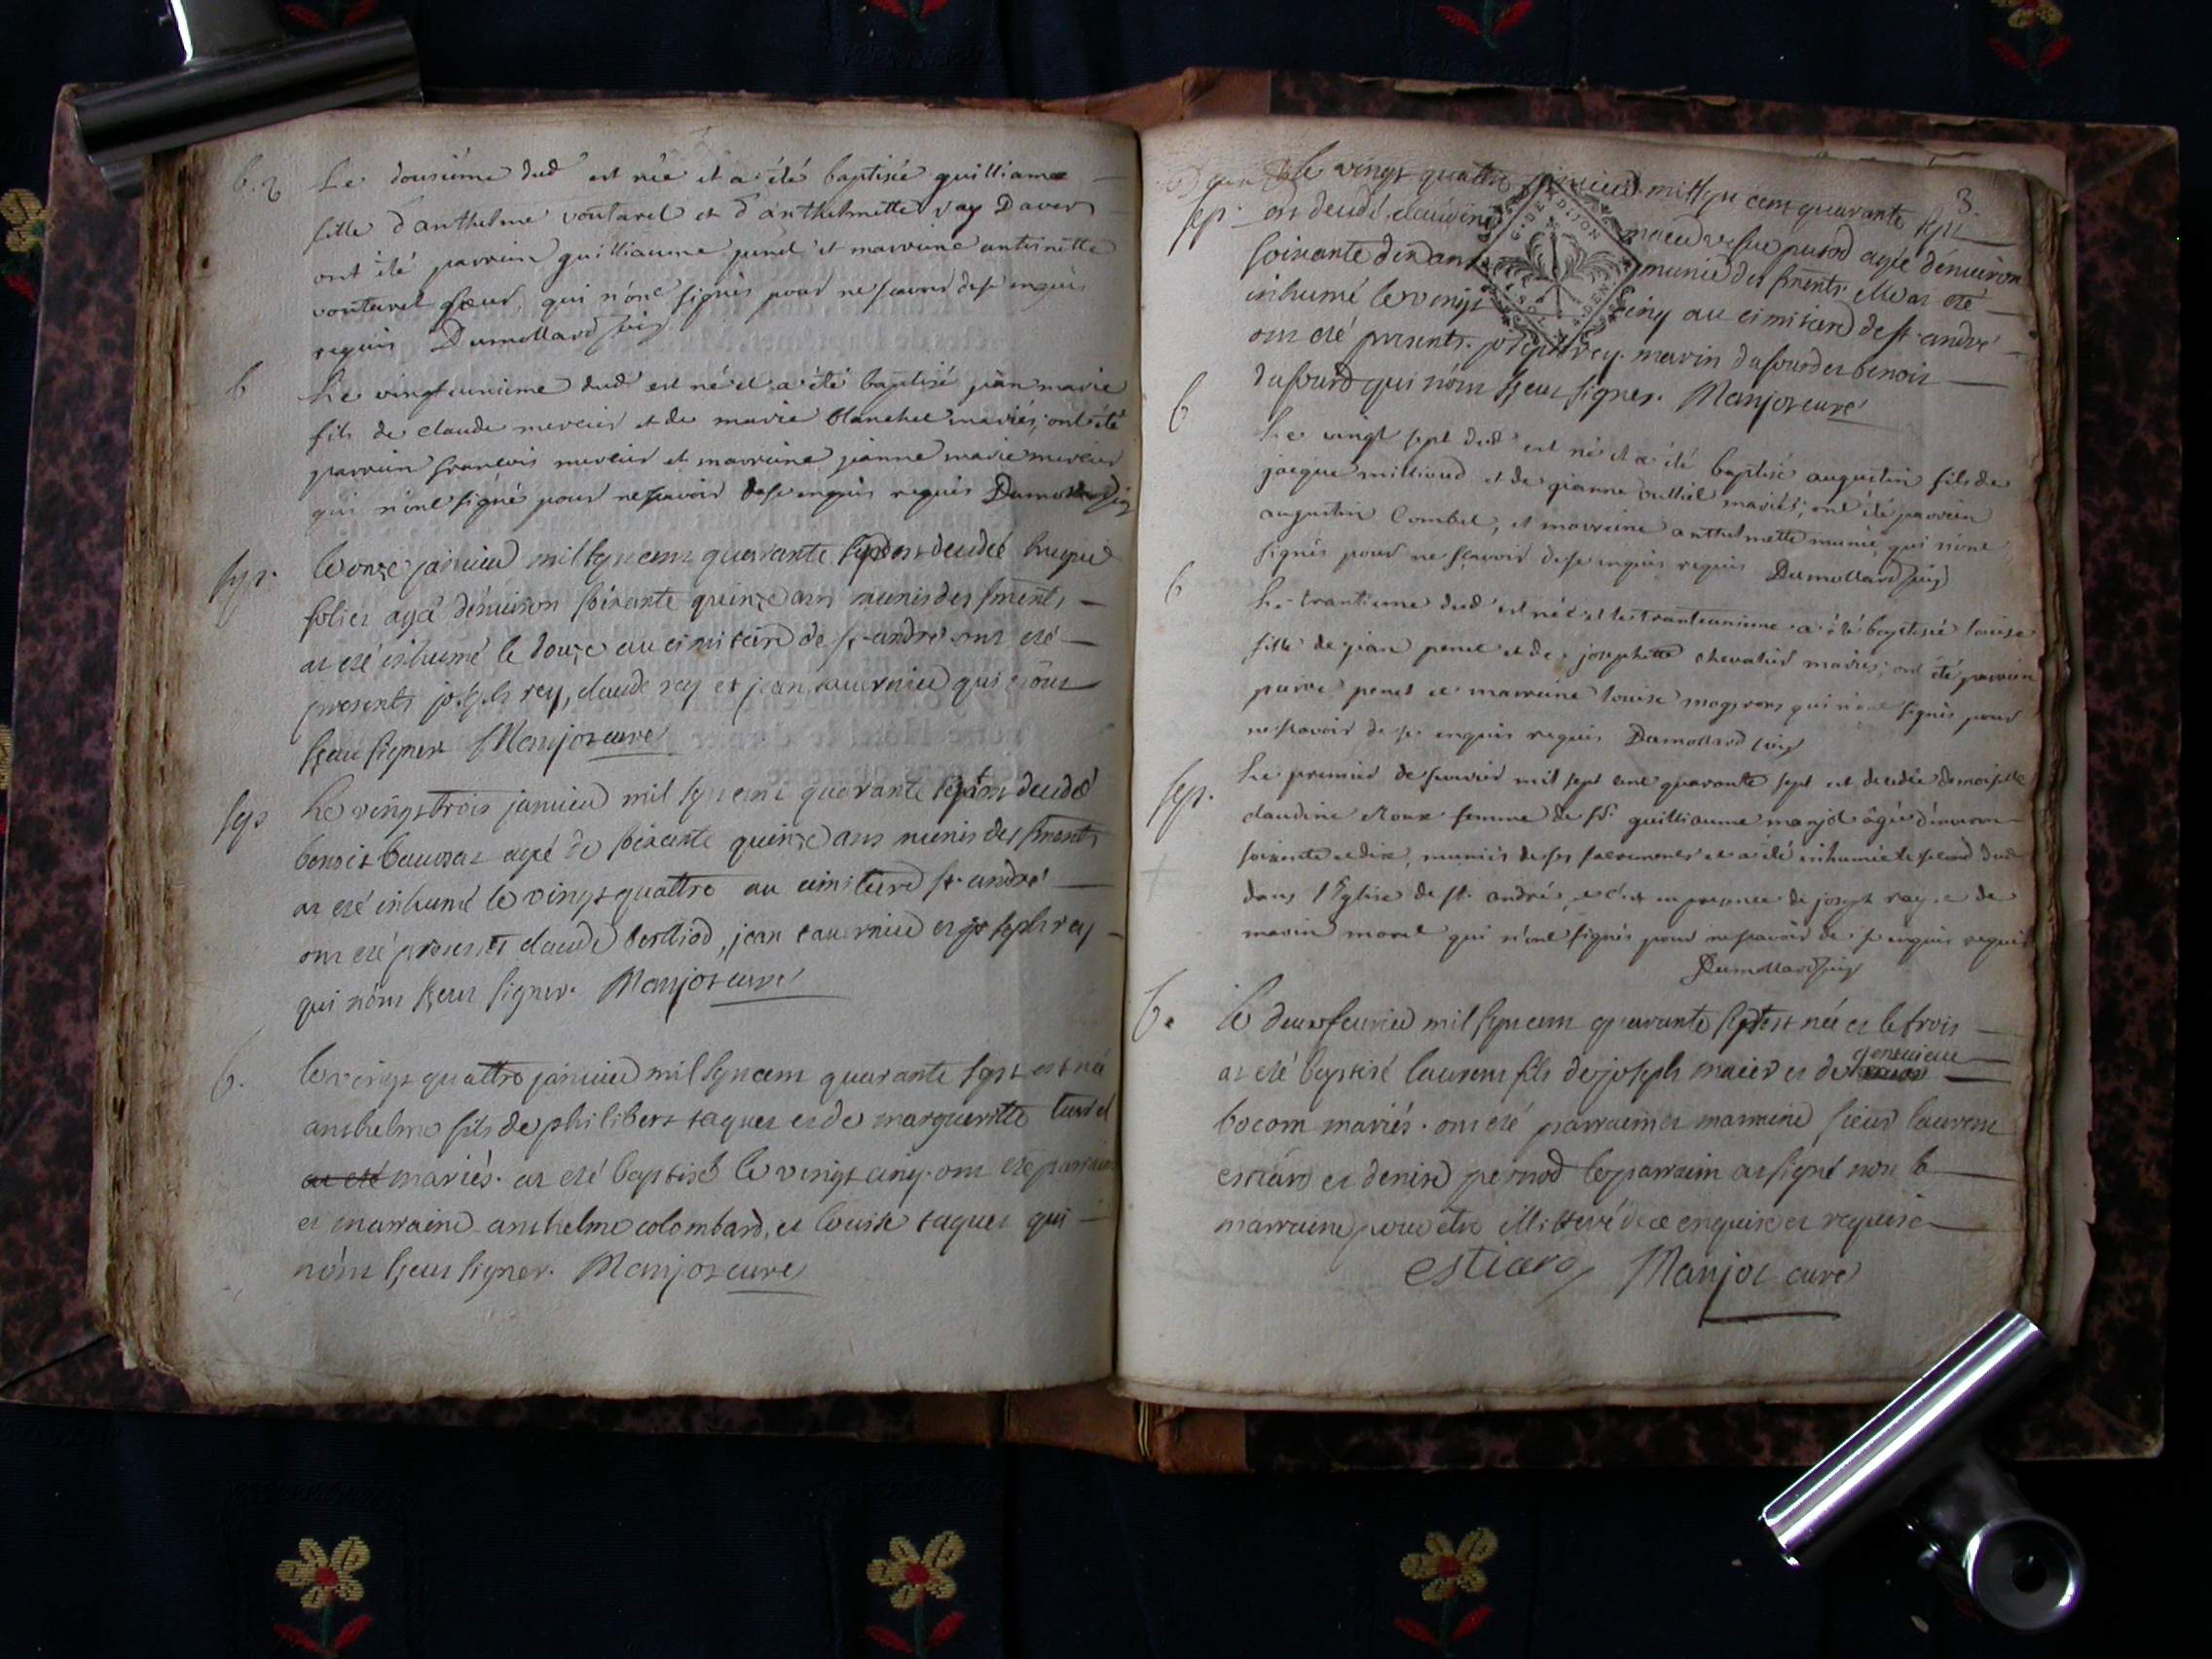 b. 2 Le dousiéme dud est née et a été baptisée guilliame
fille d'anthelme voutaret et d'anthelmette Ray
ont été parrein guilliaume et marreine antoinette
voutaret sœur, qui n'ont signés pour ne savoir de ce enquis
requis Dumollard vic
b Le vingteunieme dud est né et a été baptisé jean marie
fils de claude mercier et de marie blanchet mariés, ont été
parrein francois mercier et marreine jeanne marie mercier
qui n'ont signé pour ne scavoir de ce enquis requis Dumollard vic
sep. le onze janvier mil sept cent quarante sept est decedé
folier agé d'environ soixante quinze ans munis des sments
at eté inhumé le douze au cimitiere de st andré ont eté
presents joseph rey, claude rey et jean tavernier qui n'ont
sçeu signer Manjot curé
sep Le vingt trois janvier mil sept cent quarante sept est decedé
benoit agé de soixante quinze ans munis des sments
at eté inhumé le vingt quattre au cimitiere st. andré
ont eté presents claude berlliod, jean tavernier et joseph rey
qui n'ont sçeu signer. Manjot curé
b. le vingt quattre janvier mil sept cent quarante sept est né
anthelme fils de philibert taquet et de margueritte
at eté mariés. at eté baptisé le vingt cinq. ont eté parrain
et marraine anthelme colombard, et louise taquet qui
n'ont sçeu signer. Manjot curé
3.
le vingt quattre janvier mil sept cent quarante sept
sep. est decedé claudine veſue agée d'environ
soixante dix ans munie des sments. elle at eté
inhumé le vingt cinq au cimitiere de st. andré
ont eté presents. joseph rey. marin dufourd et benoit
dufourd qui n'ont sçeu signer. Manjot curé
b Le vingt sept dud est né et a été baptisé augustin fils de
jacque millioud et de jeanne mariés, ont été parrein
augustin Combet, et marreine anthelmette qui n'ont
signés pour ne sçavoir de ce enquis requis Dumollard vic
b Le trantieme dud est née et le tranteunieme a été baptisée louise
fille de jean penet et de josephette chevalier mariés, ont été parrein
pierre penet et marreine louise qui n'ont signés pour
ne scavoir de ce enquis requis Dumollard vic
sep. Le premier de fevrier mil sept cent quarante sept est decedée demoiselle
claudine Roux femme de sr guilliaume manjot âgée d'environ
soixante et dix, muniés de ses sacrements et a été inhumée le second dud
dans l'Eglise de st. andrés, et c'est en presence de joseph ray et de
marin moret qui n'ont signés pour ne scavoir de ce enquis requis
Dumollard vic
b. le deux fevrier mil sept cent quarante sept est né et le trois
at eté baptisé laurent fils de joseph maier et de genevieve
bocom mariés. ont eté parrain et marraine sieur laurent
estiard et denise pernod le parrain at signé non la
marraine pour etre illitteré de ce enquise et requise
estiard Manjot curé